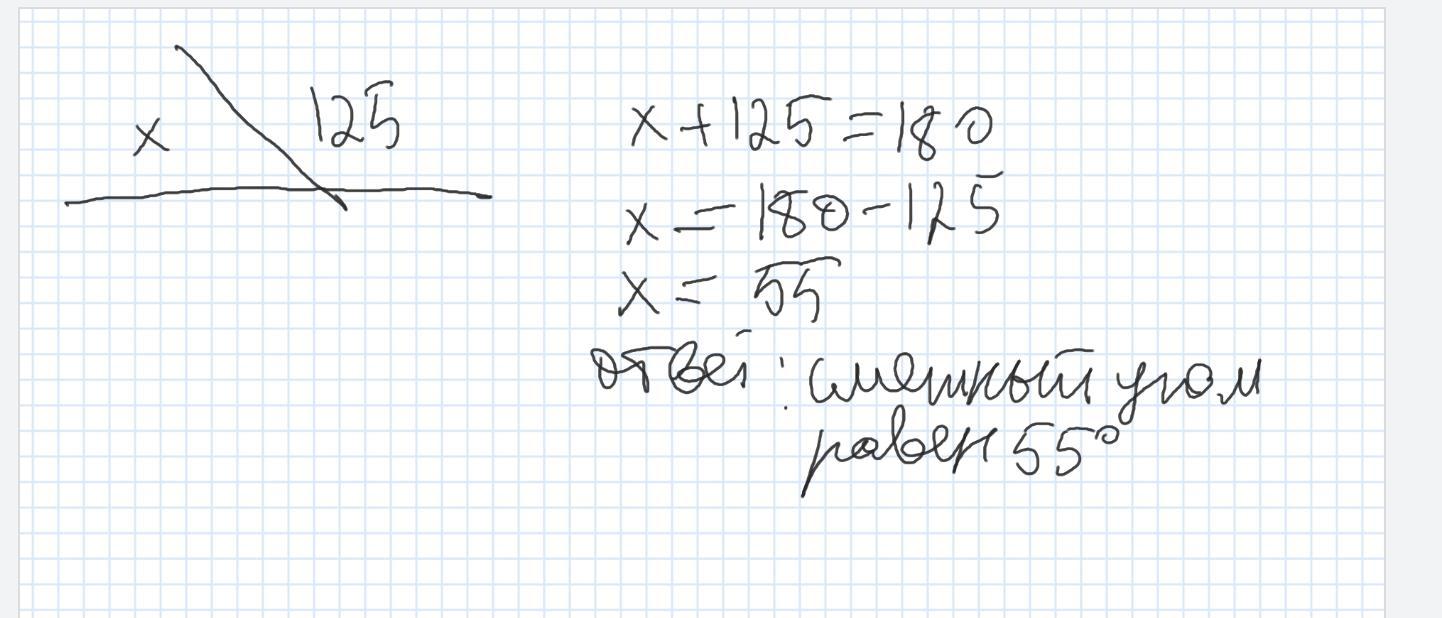 x
125
x+125=180
x=180-125
x= 55
ответ: смежный угол
равен 55°